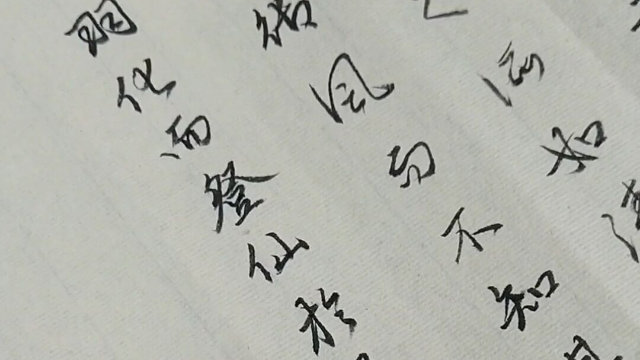 所如
御风而不知
羽化而登仙於